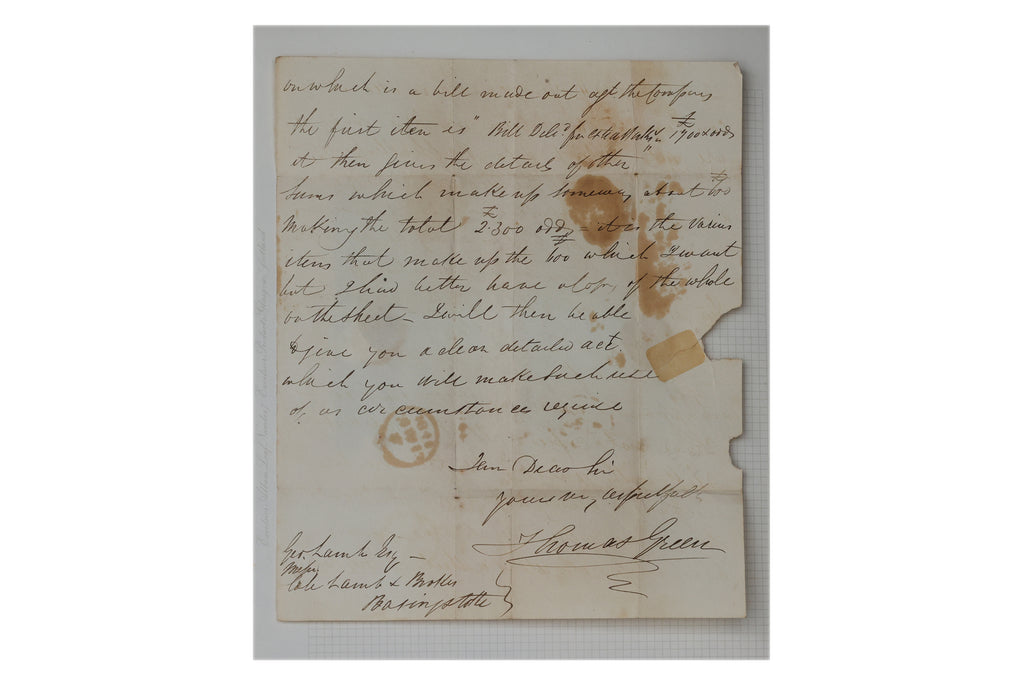 on which is a bill made out agt the Company
the first item is "Bill Deld for extra Works £1700 & odd"
it then gives the details of other
sums which make up some way about £600
Making the total £2.300 odd = it is the various
items that make up the £600 which I want
but I had better have a copy of the whole
on the sheet – I will then be able
to give you a clear detailed act.
which you will make such use
of, as circumstances require
I am Dear Sir
yours very respectfully
Thomas Green
Geo. Lamb Esq –
Messrs
Cole Lamb & Brokes
Basingstoke